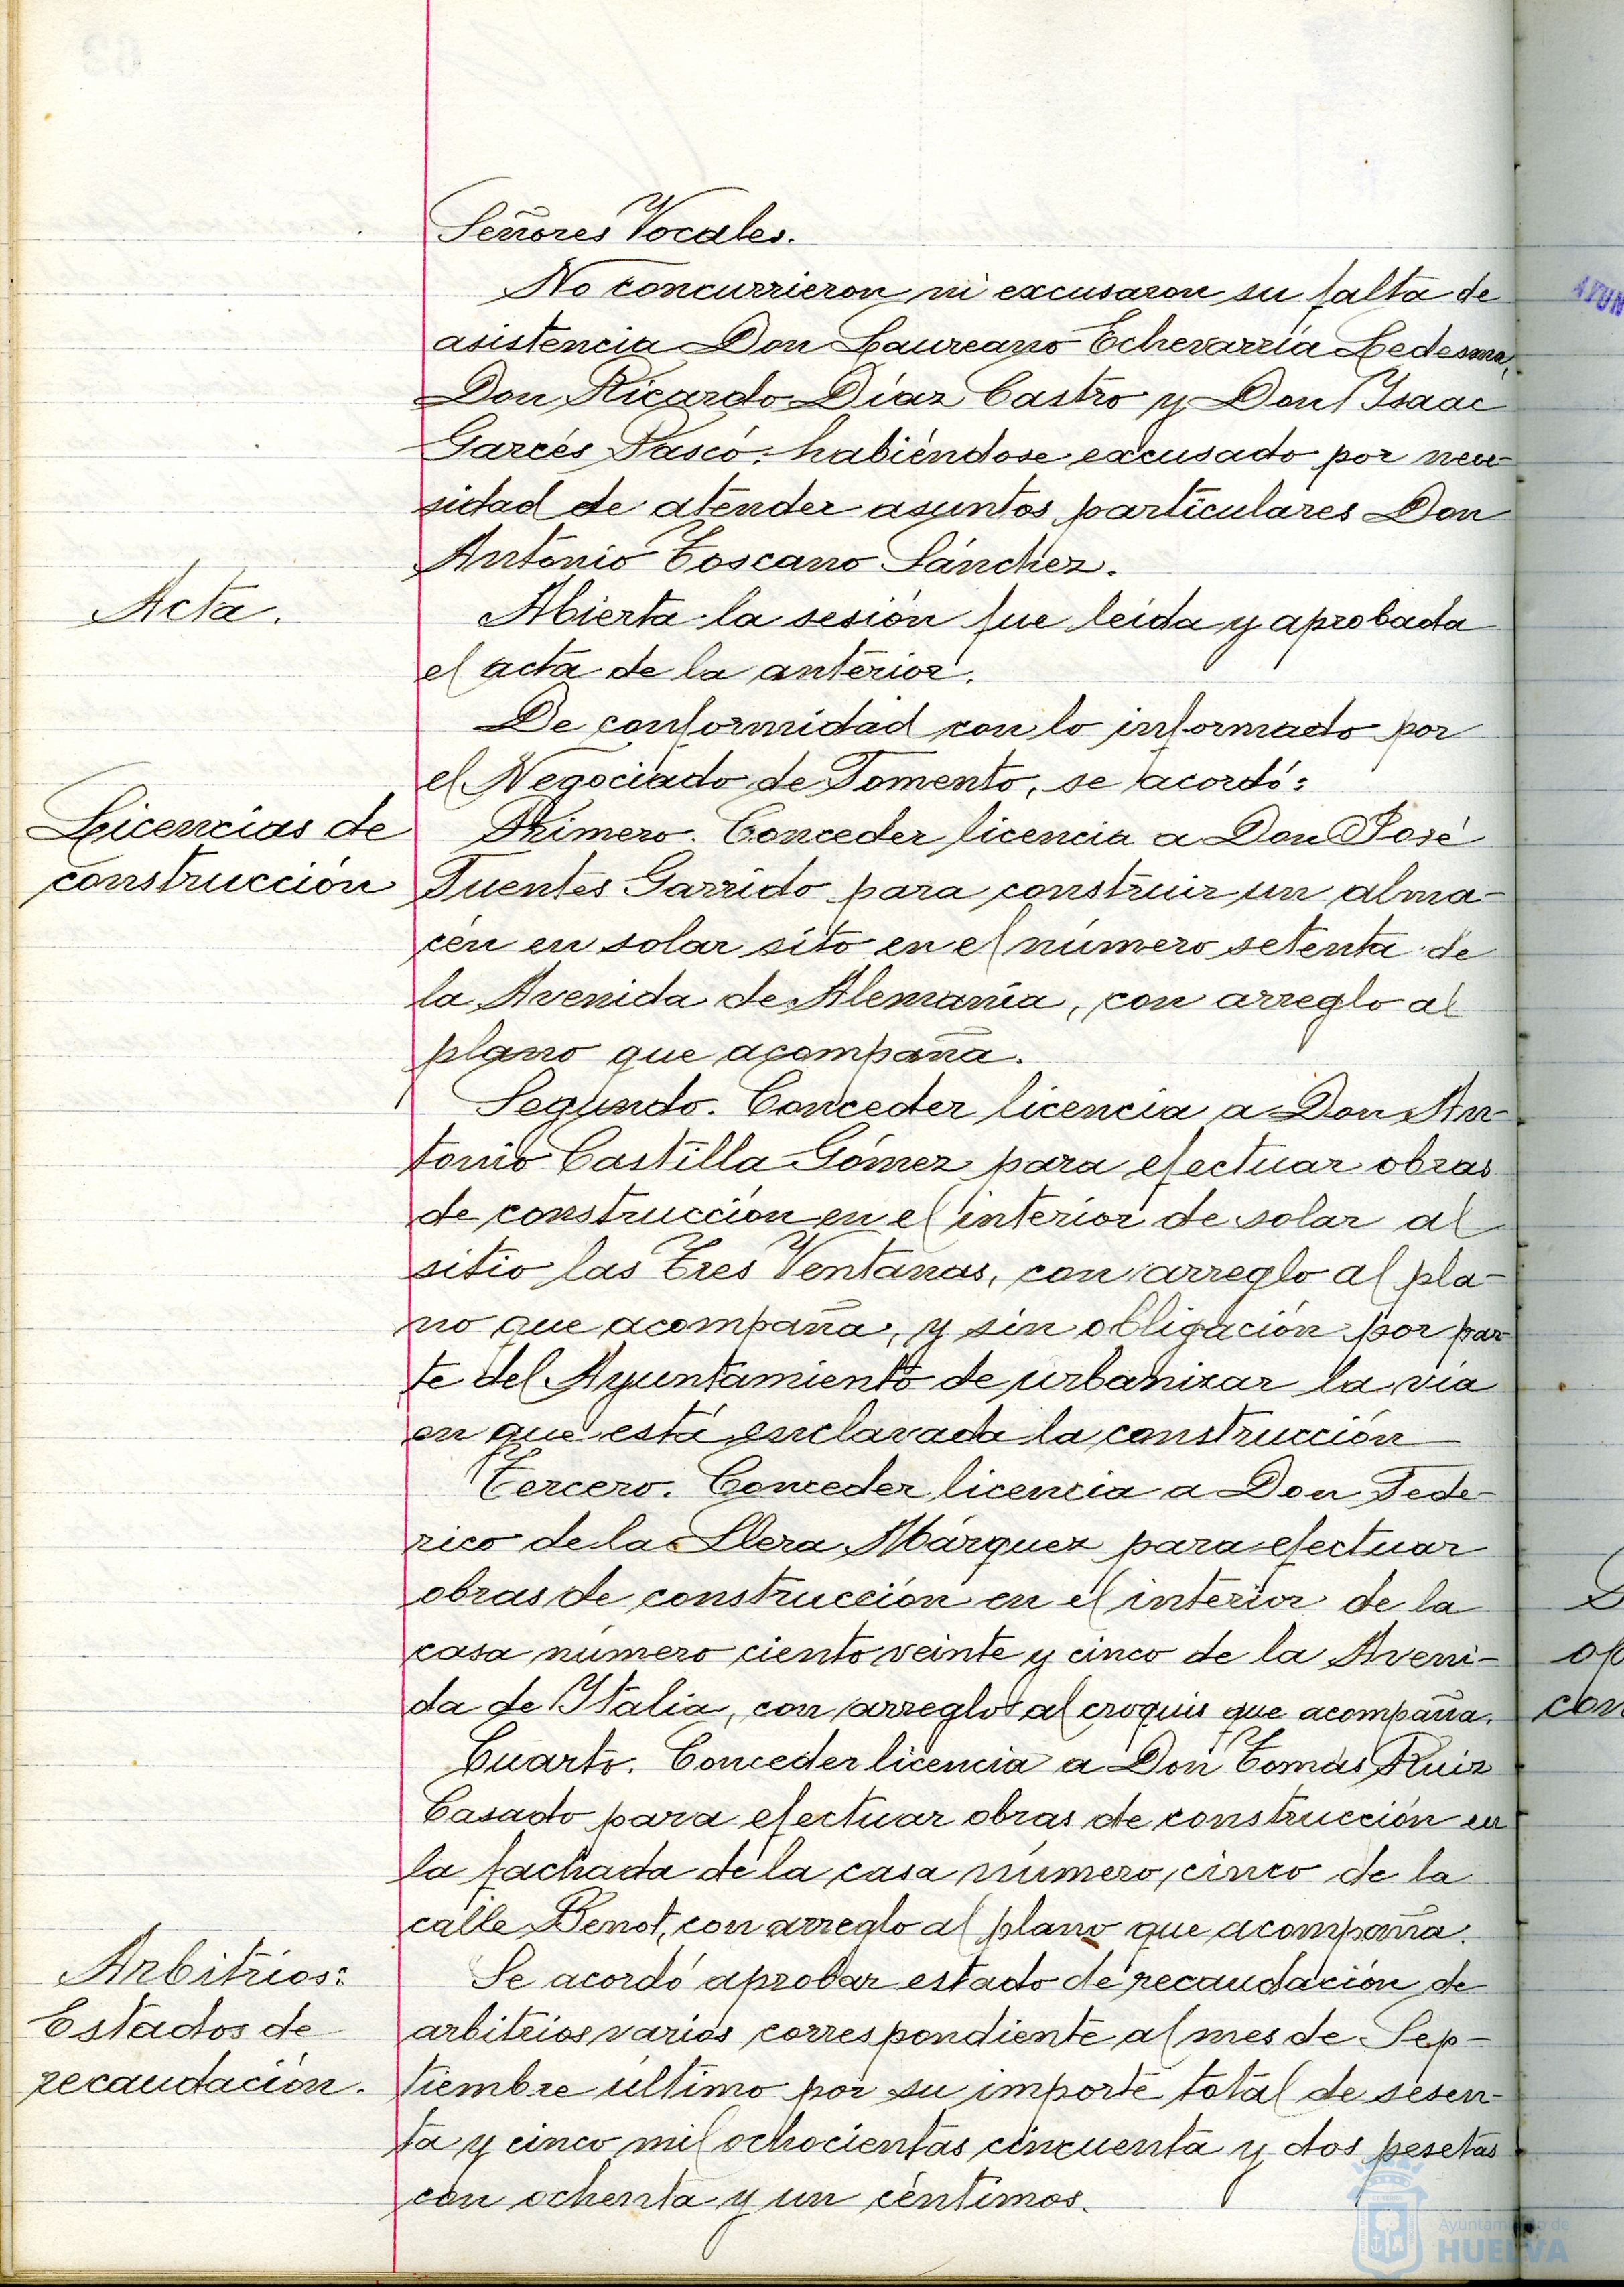 Señores Vocales.
No concurrieron ni excusaron su falta de
asistencia Don Laureano Echevarría Ledesma,
Don Ricardo Díaz Castro y Don Isaac
Garcés Pascó, habiéndose excusado por nece-
sidad de atender asuntos particulares Don
Antonio Toscano Sánchez.
Acta.
Abierta la sesión fue leida y aprobada
el acta de la anterior.
De conformidad con lo informado por
el Negociado de Fomento, se acordó:
Licencias de
construcción
Primero. Conceder licencia a Don José
Fuentes Garrido para construir un alma-
cén en solar sito en el número setenta de
la Avenida de Alemania, con arreglo al
plano que acompaña.
Segundo. Conceder licencia a Don An-
tonio Castilla Gómez para efectuar obras
de construcción en el interior de solar al
sitio las Tres Ventanas, con arreglo al pla-
no que acompaña, y sin obligación por par-
te del Ayuntamiento de urbanizar la vía
en que está enclavada la construcción
Tercero. Conceder licencia a Don Fede-
rico de la Llera Márquez para efectuar
obras de construcción en el interior de la
casa número ciento veinte y cinco de la Aveni-
da de Italia, con arreglo al croquis que acompaña.
Cuarto. Conceder licencia a Don Tomás Ruiz
Casado para efectuar obras de construcción en
la fachada de la casa número cinco de la
calle Benot, con arreglo al plano que acompaña.
Arbitrios:
Estados de
recaudación.
Se acordó aprobar estado de recaudación de
arbitrios varios correspondiente al mes de Sep-
tiembre último por su importe total de sesen-
ta y cinco mil ochocientas cincuenta y dos pesetas
con ochenta y un céntimos.
Ayuntamiento de
HUELVA